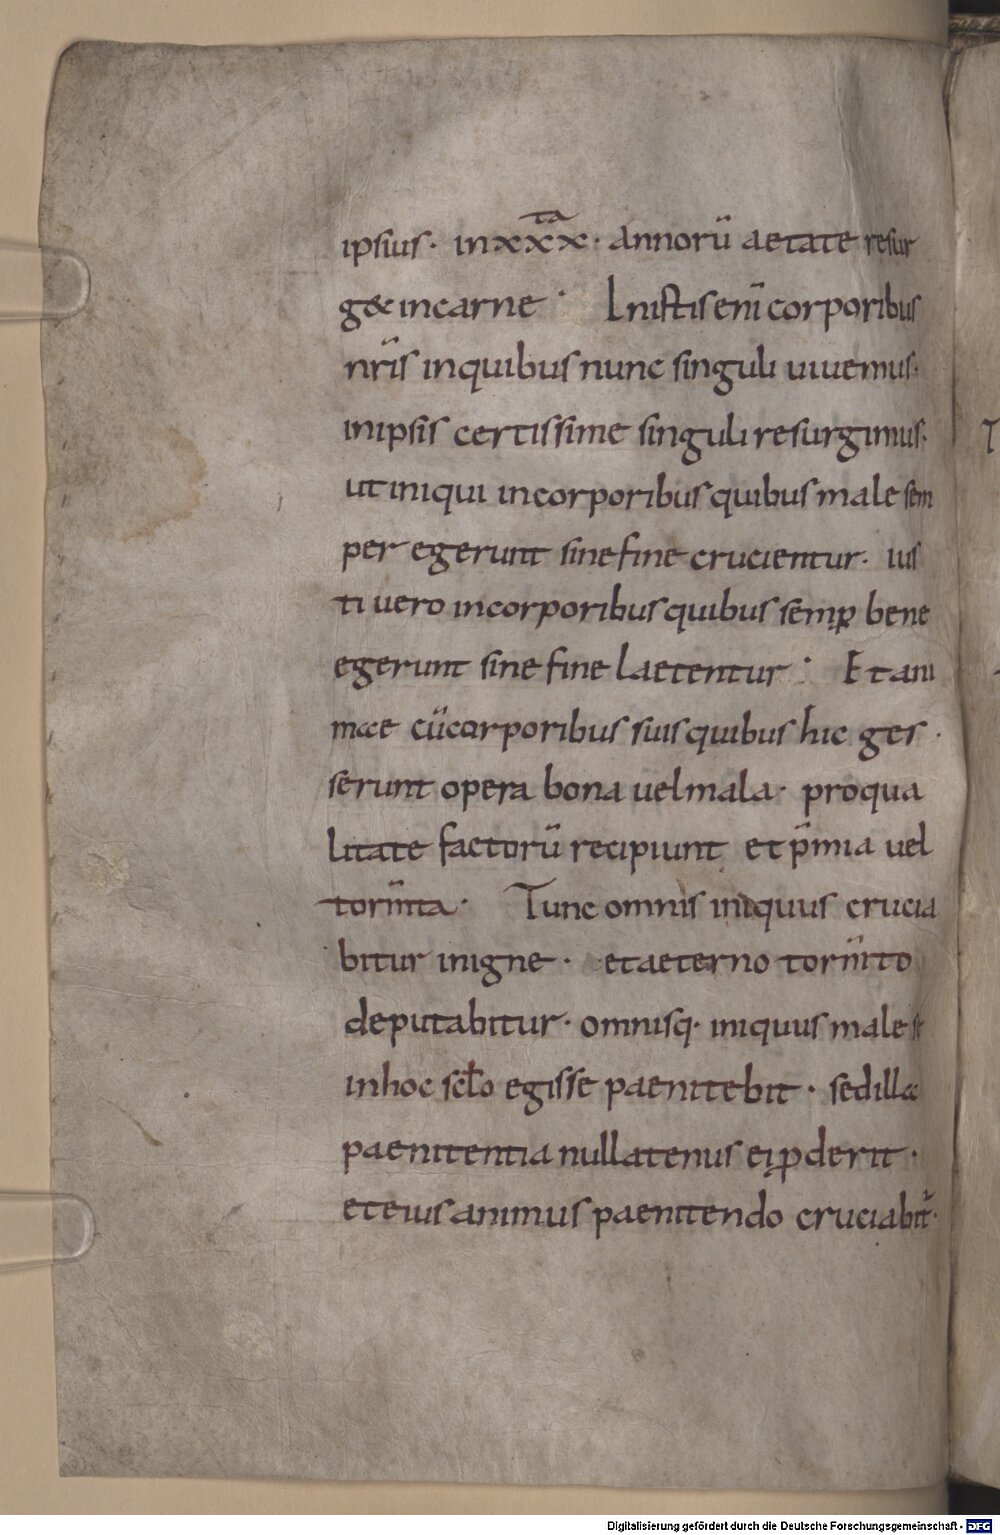 ipsius· in xxx^ta· annorū aetate resur
g& in carne · In istis enī corporibus
nr̄is in quibus nunc singuli uiuemus·
in ipsis certissime singuli resurgimus·
ut iniqui in corporibus quibus male sem
per egerunt sine fine crucientur· ius
ti uero in corporibus quibus semp̱ bene
egerunt sine fine laetentur : Et ani
mae cū corporibus suis quibus hic ges·
serunt opera bona uel mala· pro qua
litate factorū recipiunt et p̄mia uel
torm̄ta· Tunc omnis iniquus crucia
bitur in igne· et aeterno torm̄to
deputabitur· omnisq· iniquus male se
in hoc sc̄lo egisse paenitebit· sed illa
paenitentia nullatenus ei ꝓderit·
et eius animus paenitendo cruciabit̄·
Digitalisierung gefördert durch die Deutsche Forschungsgemeinschaft - DFG